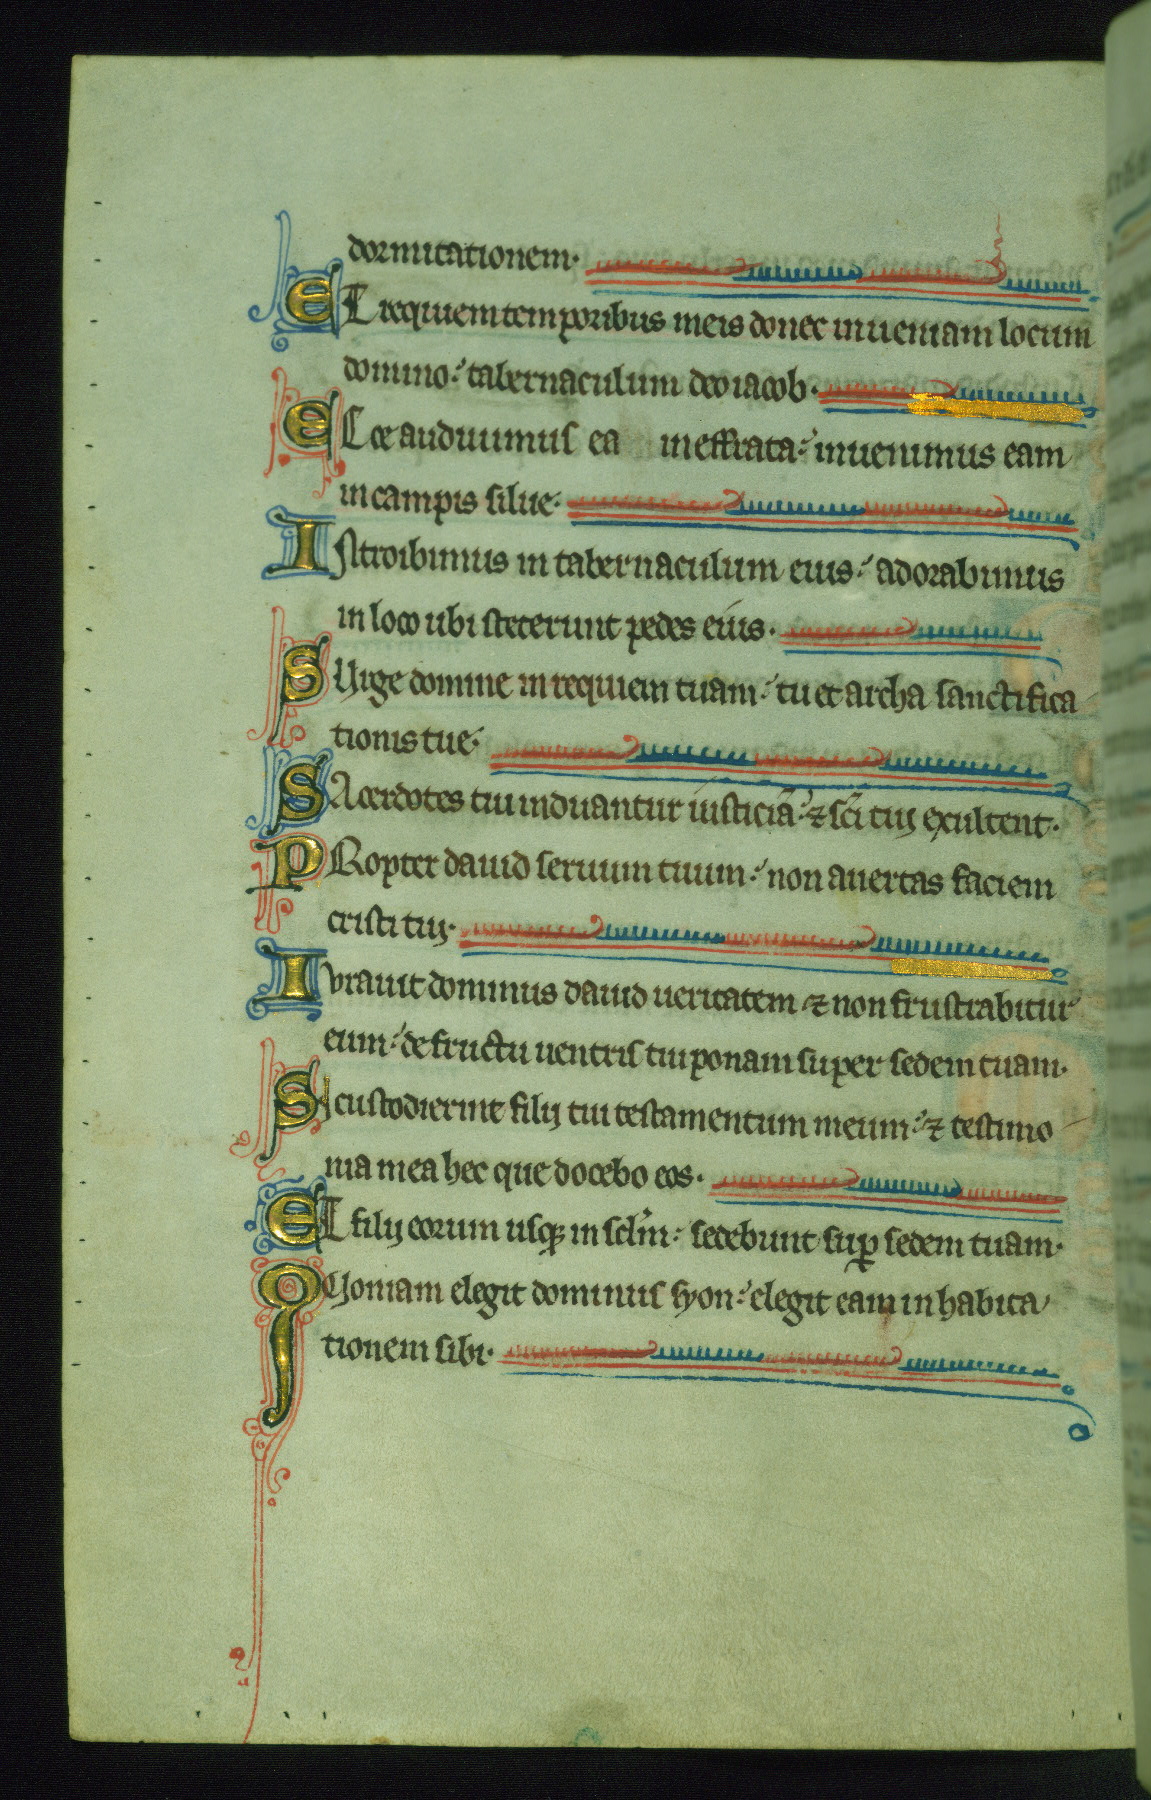 dormitationem·
ET requiem temporibus meis donec inueniam locum
domino: tabernaculum deo iacob·
ECce audiuimus ea in effrata: inuenimus eam
in campis silue·
INtroibimus in tabernaculum eius: adorabimus
in loco ubi steterunt pedes eius·
SUrge domine in requiem tuam: tu et archa sanctifica
tionis tue·
SAcerdotes tui induantur iusticiā: ⁊ sc̄i tuij exultent·
PRopter dauid seruum tuum: non auertas faciem
cristi tui·
Iurauit dominus dauid ueritatem ⁊ non frustrabitur
eum: de fructu uentris tui ponam super sedem tuam·
SI custodierint filij tui testamentum meum: ⁊ testimo
nia mea hec que docebo eos·
ET filij eorum usqꝫ in sclm̄: sedebunt suꝑ sedem tuam·
QUoniam elegit dominus syon: elegit eam in habita
tionem sibi·